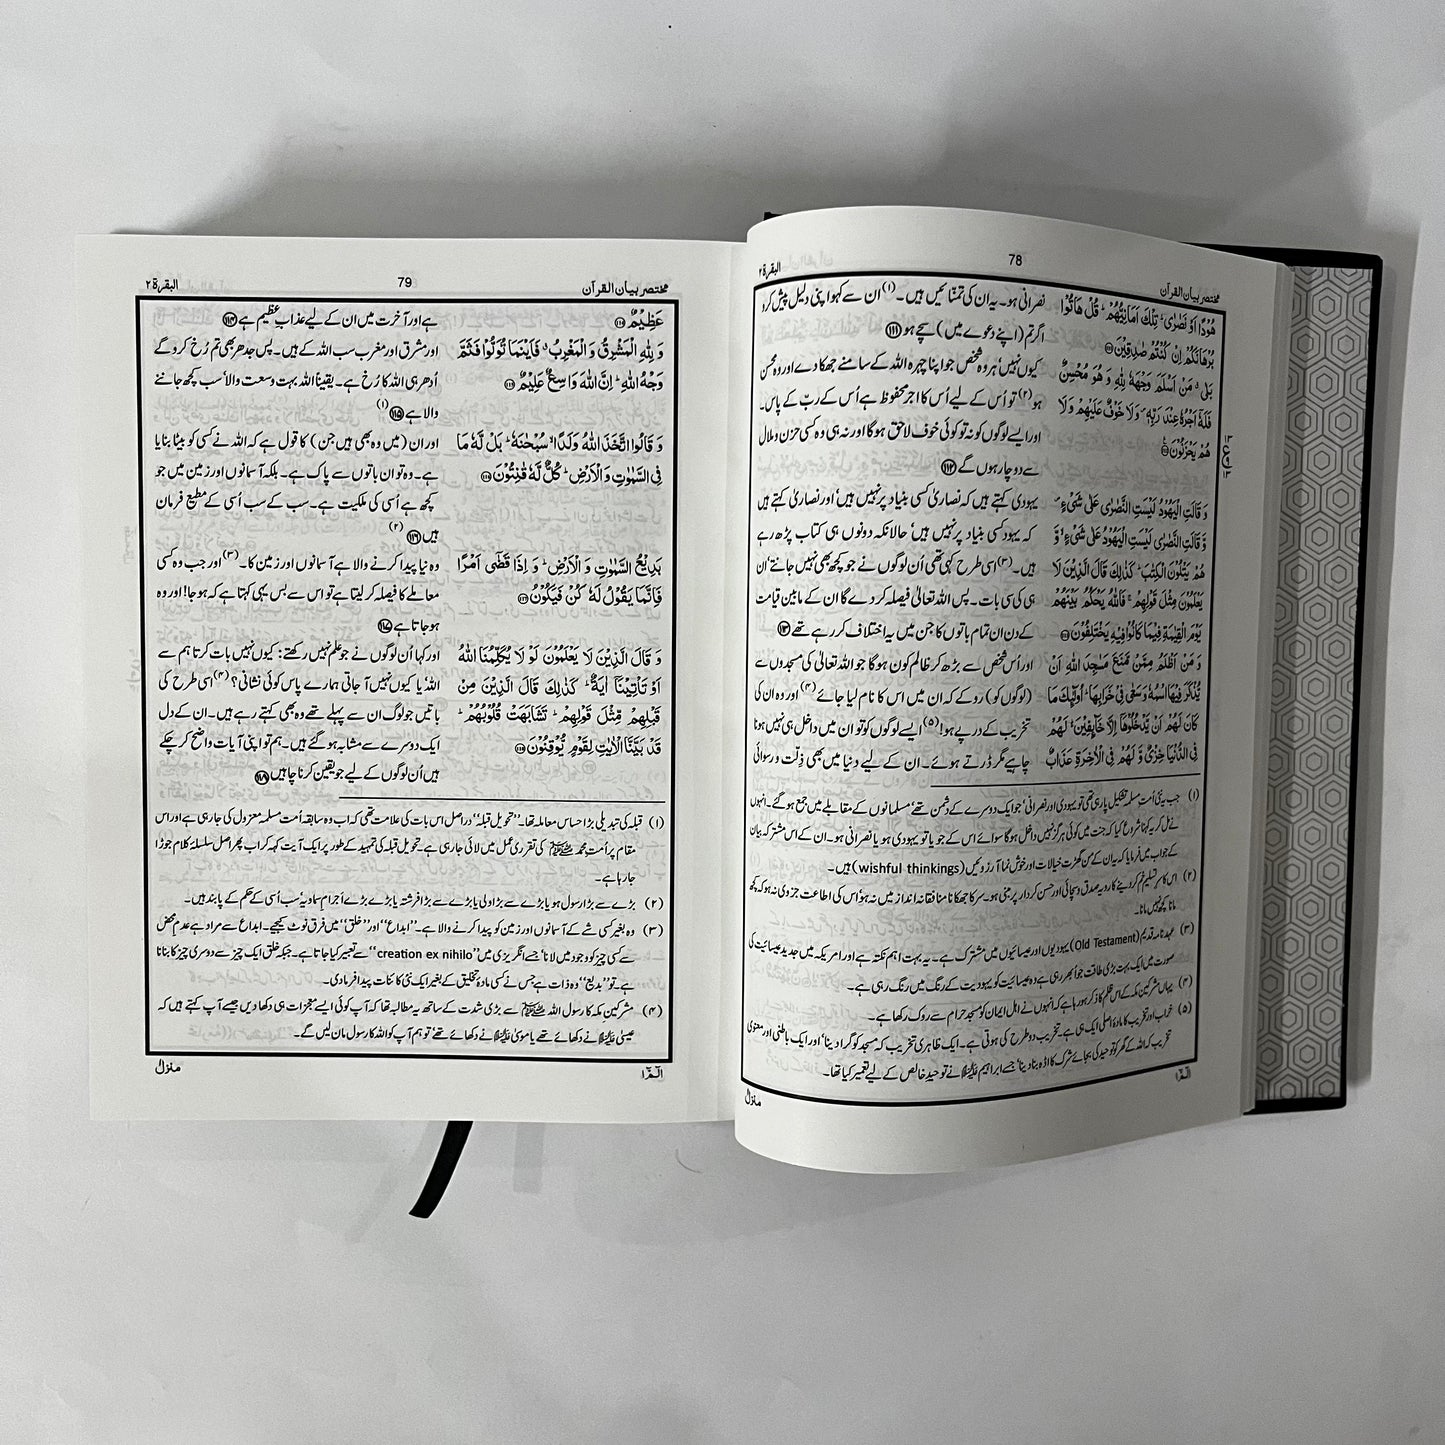 مختصر بیان القرآن
78
البقرة ۲
هُوۡدًا اَوۡ نَصٰرٰی ؕ تِلۡکَ اَمَانِیُّہُمۡ ؕ قُلۡ ہَاتُوۡا
بُرۡہَانَکُمۡ اِنۡ کُنۡتُمۡ صٰدِقِیۡنَ ﴿۱۱۱﴾
بَلٰی ٭ مَنۡ اَسۡلَمَ وَجۡہَہٗ لِلّٰہِ وَ ہُوَ مُحۡسِنٌ
فَلَہٗۤ اَجۡرُہٗ عِنۡدَ رَبِّہٖ ۪ وَ لَا خَوۡفٌ عَلَیۡہِمۡ وَ لَا
ہُمۡ یَحۡزَنُوۡنَ ﴿۱۱۲﴾
وَ قَالَتِ الۡیَہُوۡدُ لَیۡسَتِ النَّصٰرٰی عَلٰی شَیۡءٍ ۪
وَّ قَالَتِ النَّصٰرٰی لَیۡسَتِ الۡیَہُوۡدُ عَلٰی شَیۡءٍ ۙ وَّ
ہُمۡ یَتۡلُوۡنَ الۡکِتٰبَ ؕ کَذٰلِکَ قَالَ الَّذِیۡنَ لَا
یَعۡلَمُوۡنَ مِثۡلَ قَوۡلِہِمۡ ۚ فَاللّٰہُ یَحۡکُمُ بَیۡنَہُمۡ
یَوۡمَ الۡقِیٰمَۃِ فِیۡمَا کَانُوۡا فِیۡہِ یَخۡتَلِفُوۡنَ ﴿۱۱۳﴾
وَ مَنۡ اَظۡلَمُ مِمَّنۡ مَّنَعَ مَسٰجِدَ اللّٰہِ اَنۡ
یُّذۡکَرَ فِیۡہَا اسۡمُہٗ وَ سَعٰی فِیۡ خَرَابِہَا ؕ اُولٰٓئِکَ مَا
کَانَ لَہُمۡ اَنۡ یَّدۡخُلُوۡہَاۤ اِلَّا خَآئِفِیۡنَ ۬ؕ لَہُمۡ
فِی الدُّنۡیَا خِزۡیٌ وَّ لَہُمۡ فِی الۡاٰخِرَۃِ عَذَابٌ
نصرانی ہو۔ یہ ان کی تمنّائیں ہیں۔ (۱) ان سے کہو اپنی دلیل پیش کرو
اگر تم (اپنے دعوے میں) سچے ہو ﴿۱۱۱﴾
کیوں نہیں' ہر وہ شخص جو اپنا چہرہ اللہ کے سامنے جھکا دے اور وہ محسن
ہو (۲) تو اُس کے لیے اُس کا اجر محفوظ ہے اُس کے ربّ کے پاس۔
اور ایسے لوگوں کو نہ تو کوئی خوف لاحق ہوگا اور نہ ہی وہ کسی حزن و ملال
سے دوچار ہوں گے ﴿۱۱۲﴾
یہودی کہتے ہیں کہ نصاریٰ کسی بنیاد پر نہیں ہیں' اور نصاریٰ کہتے ہیں
کہ یہود کسی بنیاد پر نہیں ہیں' حالانکہ دونوں ہی کتاب پڑھ رہے
ہیں۔ (۳) اسی طرح کہی تھی اُن لوگوں نے جو کچھ بھی نہیں جانتے' ان
ہی کی سی بات۔ پس اللہ تعالیٰ فیصلہ کر دے گا ان کے مابین قیامت
کے دن ان تمام باتوں کا جن میں یہ اختلاف کر رہے تھے ﴿۱۱۳﴾
اور اُس شخص سے بڑھ کر ظالم کون ہوگا جو اللہ تعالیٰ کی مسجدوں سے
(لوگوں کو) روکے کہ ان میں اس کا نام لیا جائے (۴) اور وہ ان کی
تخریب کے درپے ہو! (۵) ایسے لوگوں کو تو ان میں داخل ہی نہیں ہونا
چاہیے مگر ڈرتے ہوئے۔ ان کے لیے دنیا میں بھی ذلّت و رسوائی
(۱) جب یہ نئی اُمت مسلمہ تشکیل پا رہی تھی تو یہودی اور نصرانی' جو ایک دوسرے کے دشمن تھے' مسلمانوں کے مقابلے میں جمع ہو گئے۔ انہوں
نے مل کر یہ کہنا شروع کیا کہ جنت میں کوئی ہرگز نہیں داخل ہوگا سوائے اس کے جو یا تو یہودی ہو یا نصرانی ہو۔ ان کے اس مشترکہ بیان
کے جواب میں فرمایا کہ یہ ان کے من گھڑت خیالات اور خوش نما آرزوئیں (wishful thinkings) ہیں۔
(۲) اس کا سرِتسلیم خم کر دینے کا رویہ صدق و سچائی اور حسن کردار پر مبنی ہو۔ سر کا جھکانا منافقانہ انداز میں نہ ہو' اس کی اطاعت جزوی نہ ہو کہ کچھ
مانا کچھ نہیں مانا۔
(۳) عہد نامہ قدیم (Old Testament) یہودیوں اور عیسائیوں میں مشترک ہے۔ یہ بہت اہم نکتہ ہے اور امریکہ میں جدید عیسائیت کی
صورت میں ایک بہت بڑی طاقت جو اُبھر رہی ہے وہ عیسائیت کو یہودیت کے رنگ میں رنگ رہی ہے۔
(۴) یہاں مشرکین مکہ کے اس ظلم کا ذکر ہو رہا ہے کہ انہوں نے اہل ایمان کو مسجد حرام سے روک رکھا ہے۔
(۵) خراب اور تخریب کا مادۂ اصلی ایک ہی ہے۔ تخریب دو طرح کی ہوتی ہے۔ ایک ظاہری تخریب کہ مسجد کو گرا دینا' اور ایک باطنی اور معنوی
تخریب کہ اللہ کے گھر کو توحید کی بجائے شرک کا اڈہ بنا دینا' جسے ابراہیم علیہ السلام نے توحیدِ خالص کے لیے تعمیر کیا تھا۔
الٓمّٓ ۱
منزل ۱
مختصر بیان القرآن
79
البقرة ۲
عَظِیۡمٌ ﴿۱۱۴﴾
وَ لِلّٰہِ الۡمَشۡرِقُ وَ الۡمَغۡرِبُ ٭ فَاَیۡنَمَا تُوَلُّوۡا فَثَمَّ
وَجۡہُ اللّٰہِ ؕ اِنَّ اللّٰہَ وَاسِعٌ عَلِیۡمٌ ﴿۱۱۵﴾
وَ قَالُوا اتَّخَذَ اللّٰہُ وَلَدًا ۙ سُبۡحٰنَہٗ ؕ بَلۡ لَّہٗ مَا
فِی السَّمٰوٰتِ وَ الۡاَرۡضِ ؕ کُلٌّ لَّہٗ قٰنِتُوۡنَ ﴿۱۱۶﴾
بَدِیۡعُ السَّمٰوٰتِ وَ الۡاَرۡضِ ؕ وَ اِذَا قَضٰۤی اَمۡرًا
فَاِنَّمَا یَقُوۡلُ لَہٗ کُنۡ فَیَکُوۡنُ ﴿۱۱۷﴾
وَ قَالَ الَّذِیۡنَ لَا یَعۡلَمُوۡنَ لَوۡ لَا یُکَلِّمُنَا اللّٰہُ
اَوۡ تَاۡتِیۡنَاۤ اٰیَۃٌ ؕ کَذٰلِکَ قَالَ الَّذِیۡنَ مِنۡ
قَبۡلِہِمۡ مِّثۡلَ قَوۡلِہِمۡ ؕ تَشَابَہَتۡ قُلُوۡبُہُمۡ ؕ
قَدۡ بَیَّنَّا الۡاٰیٰتِ لِقَوۡمٍ یُّوۡقِنُوۡنَ ﴿۱۱۸﴾
ہے اور آخرت میں ان کے لیے عذابِ عظیم ہے ﴿۱۱۴﴾
اور مشرق اور مغرب سب اللہ کے ہیں۔ پس جدھر بھی تم رُخ کرو گے
اُدھر ہی اللہ کا رُخ ہے۔ یقیناً اللہ بہت وسعت والا' سب کچھ جاننے
والا ہے ﴿۱۱۵﴾ (۱)
اور ان (میں وہ بھی ہیں جن) کا قول ہے کہ اللہ نے کسی کو بیٹا بنایا
ہے۔ وہ تو ان باتوں سے پاک ہے۔ بلکہ آسمانوں اور زمین میں جو
کچھ ہے اُسی کی ملکیت ہے۔ سب کے سب اُسی کے مطیع فرمان
ہیں ﴿۱۱۶﴾ (۲)
وہ نیا پیدا کرنے والا ہے آسمانوں اور زمین کا۔ (۳) اور جب وہ کسی
معاملے کا فیصلہ کر لیتا ہے تو اس سے بس یہی کہتا ہے کہ ہو جا! اور وہ
ہو جاتا ہے ﴿۱۱۷﴾
اور کہا اُن لوگوں نے جو علم نہیں رکھتے : کیوں نہیں بات کرتا ہم سے
اللہ' یا کیوں نہیں آ جاتی ہمارے پاس کوئی نشانی؟ (۴) اسی طرح کی
باتیں جو لوگ ان سے پہلے تھے وہ بھی کہتے رہے ہیں۔ ان کے دل
ایک دوسرے سے مشابہ ہو گئے ہیں۔ ہم تو اپنی آیات واضح کر چکے
ہیں اُن لوگوں کے لیے جو یقین کرنا چاہیں ﴿۱۱۸﴾
(۱) قبلہ کی تبدیلی بڑا حساس معاملہ تھا۔ ''تحویل قبلہ'' دراصل اس بات کی علامت تھی کہ اب وہ سابقہ اُمت مسلمہ معزول کی جا رہی ہے اور اس
مقام پر اُمتِ محمد ﷺ کی تقرری عمل میں لائی جا رہی ہے۔ تحویل قبلہ کی تمہید کے طور پر ایک آیت کہہ کر اب پھر اصل سلسلۂ کلام جوڑا
جا رہا ہے۔
(۲) بڑے سے بڑا رسول ہو یا بڑے سے بڑا ولی یا بڑے سے بڑا فرشتہ یا بڑے بڑے اَجرام سماویہ' سب اُسی کے حکم کے پابند ہیں۔
(۳) وہ بغیر کسی شے کے آسمانوں اور زمین کو پیدا کرنے والا ہے۔ ''ابداع'' اور ''خلق'' میں فرق نوٹ کیجیے۔ ابداع سے مراد ہے عدمِ محض
سے کسی چیز کو وجود میں لانا' جسے انگریزی میں ''creation ex nihilo'' سے تعبیر کیا جاتا ہے۔ جبکہ خلق ایک چیز سے دوسری چیز کا بنانا
ہے تو ''بدیع'' وہ ذات ہے جس نے کسی مادۂ تخلیق کے بغیر ایک نئی کائنات پیدا فرما دی۔
(۴) مشرکین مکہ کا رسول اللہ ﷺ سے بڑی شدت کے ساتھ یہ مطالبہ تھا کہ آپ کوئی ایسے معجزات ہی دکھا دیں جیسے آپ کہتے ہیں کہ
عیسیٰ علیہ السلام نے دکھائے تھے یا موسیٰ علیہ السلام نے دکھائے تھے' تو ہم آپ کو اللہ کا رسول مان لیں گے۔
الٓمّٓ ۱
منزل ۱